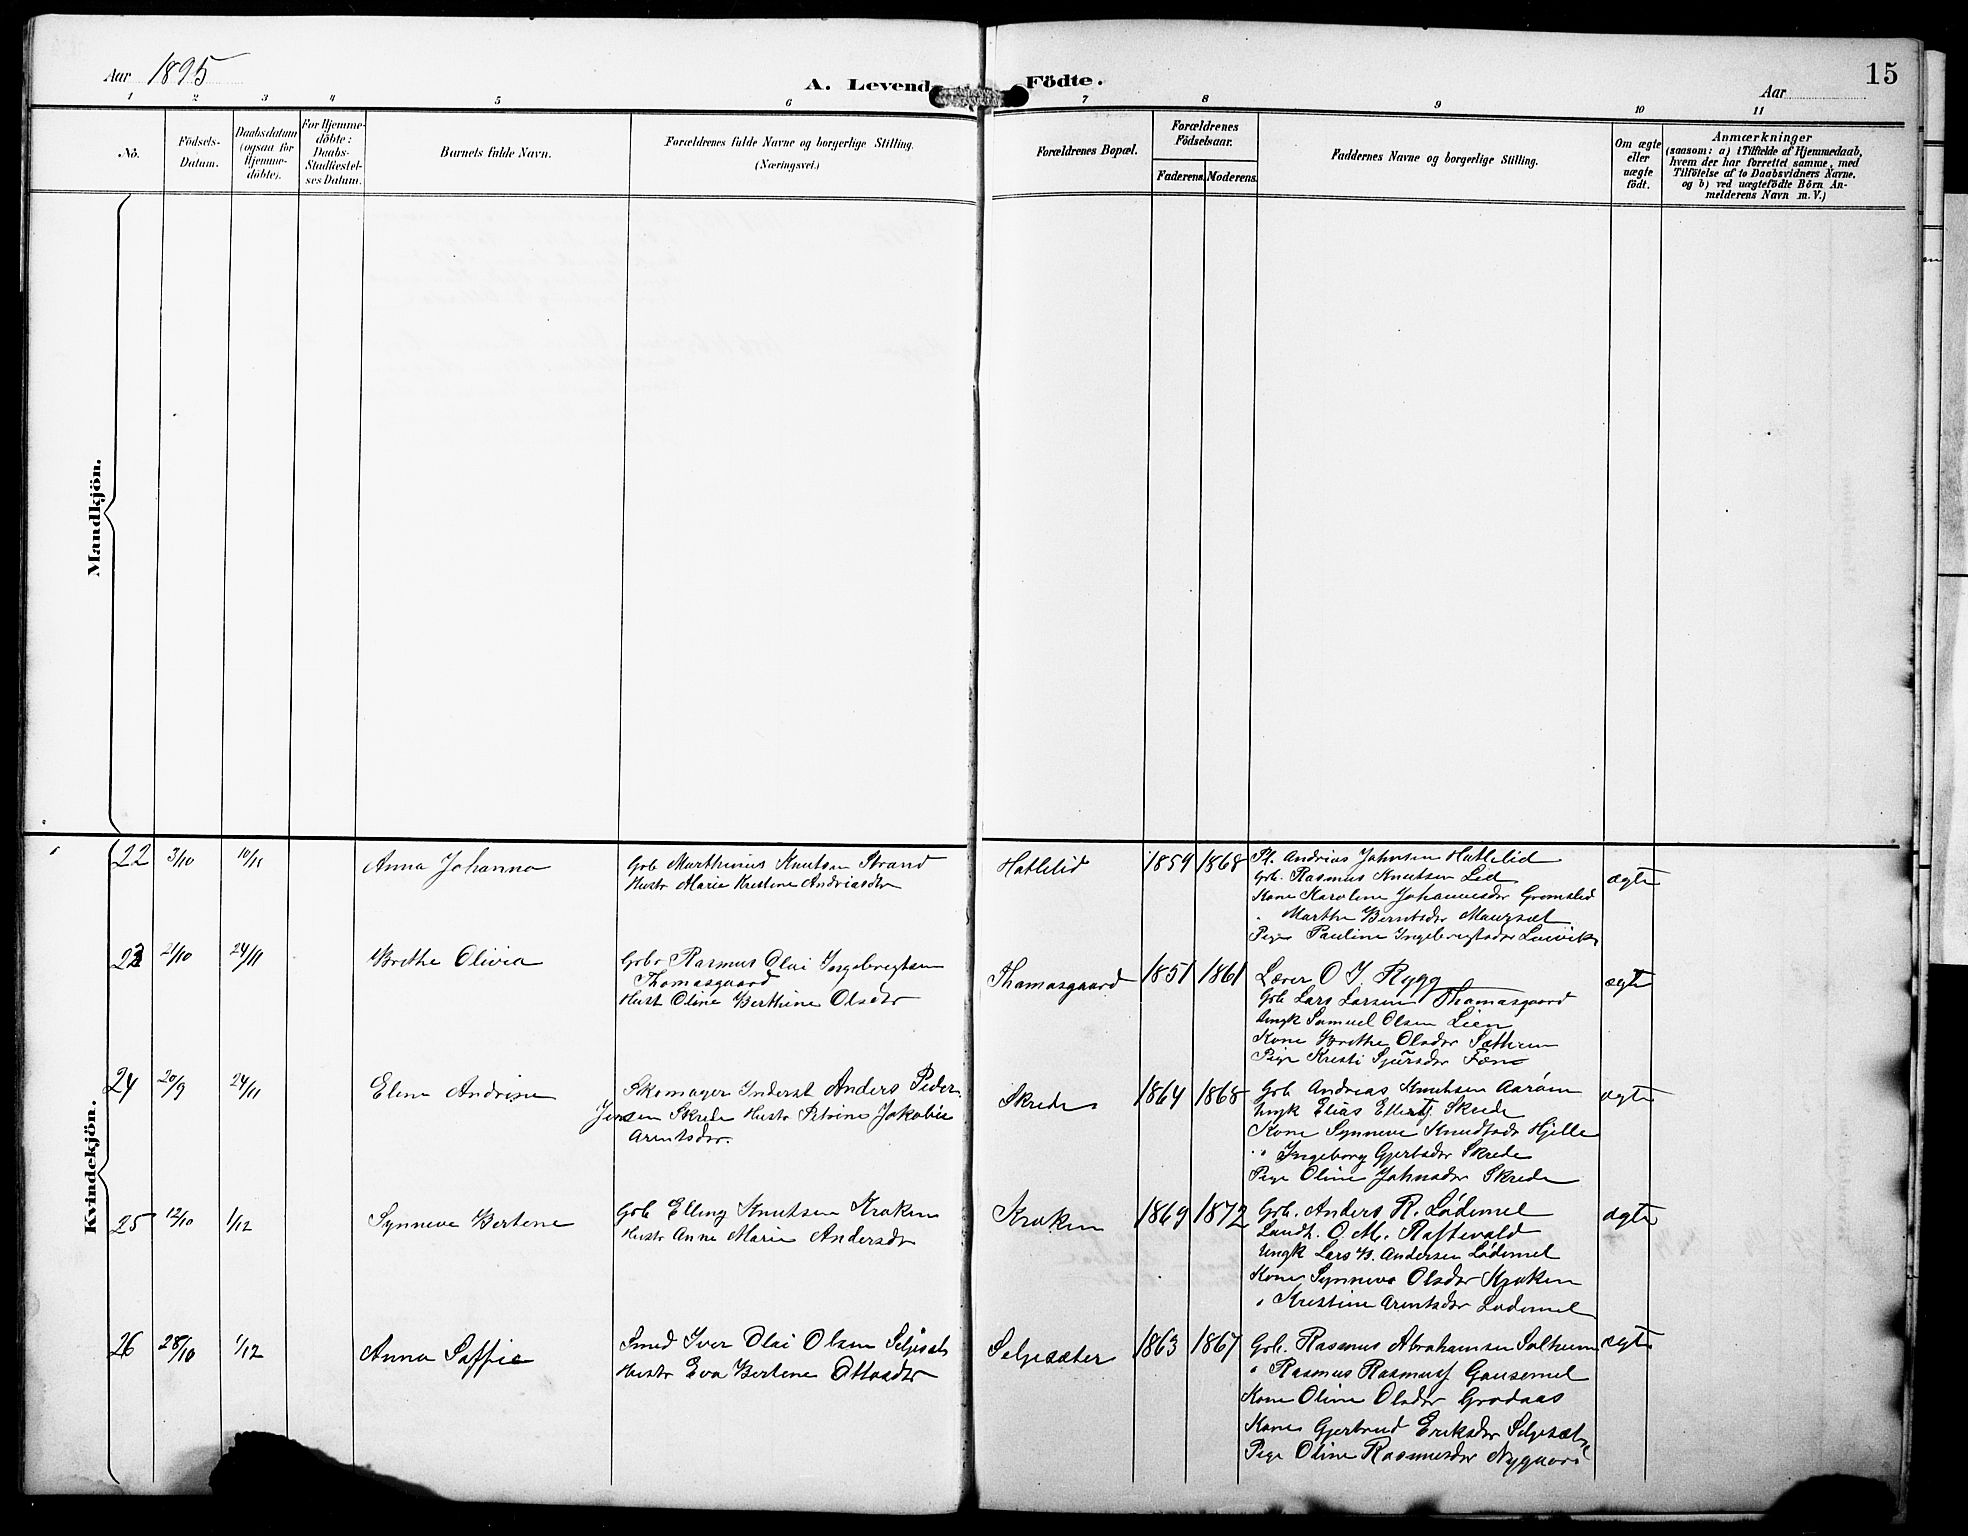 Aar 1895
A. Levend Födte.
Aar
15
1 2 3 4 5 6 7 8 9 10 11
No.
Födsels-Datum.
Daabsdatum (ogsaa for Hjemme-döbte).
For Hjemme-döbte: Daabs-Stadfæstel-ses Datum.
Barnets fulde Navn.
Forældrenes fulde Navne og borgerlige Stilling.
(Næringsvei.)
Forældrenes Bopæl.
Forældrenes Födselsaar.
Faderens. Moderens.
Faddernes Navne og borgerlige Stilling.
Om ægte eller uægte födt.
Anmærkninger
(saasom: a) i Tilfælde af Hjemmedaab,
hvem der har forrettet samme, med
Tilföielse af to Daabsvidners Navne.
og b) ved uægtefödte Börn An-
melderens Navn m. V.)
Mandkjön.
Kvindekjön.
22 3/10 10/11 Anna Johanna
Gbr Marthinus Knutsen Strand
Hustr Marie Kristine Andriasdtr
Hatlelid 1859 1868
Pl. Andrias Johnsen Hatlelid
Gbr. Rasmus Knutsen Lid
Kone Karoline Johannesdtr Gromslid
" Marthe Berntsdtr Maurset
Pige Pauline Ingebrigtsdtr Leivik
ægte
23 21/10 24/11 Brethe Olivia
Gbr Rasmus Olai Ingebrigtsen
Thomasgaard
Hust Oline Berthine Olsdtr
Thomasgaard 1851 1861
Lærer O J Rygg
Gbr Lars Larsen Thomasgaard
Ungk Samuel Olsen Lien
Kone Brethe Olsdtr Sæthren
Pige Kristi Sjursdtr Fæn
ægte
24 20/9 24/11 Eline Andrine
Skomager Inderst Anders Peder
Jensen Skrede Hustr Petrine Jakobie
Arentsdtr.
Skrede 1864 1868
Gbr Andreas Knutsen Aarøen
Ungk Elias Ellertf Skrede
Kone Synneve Knudtsdt Hjelle
" Ingeborg Gjertsdtr Skrede
Pige Oline Johnsdtr Skrede
ægte
25 12/10 1/12 Synneve Bertene
Gbr Elling Knutsen Kroken
Hustr Anne Marie Andersdtr
Kroken 1869 1872
Gbr. Anders R. Lødemel
Landh. O. M. Raftevold
Ungk Lars B. Andersen Lødemel
Kone Synneve Olsdtr Kroken
" Kristine Arentsdtr Lødemel
ægte
26 28/10 1/12 Anna Soffie
Smed Iver Olai Olsen Seljesæt
Hustr Eva Bertene Ottosdtr
Seljesæter 1863 1867
Gbr. Rasmus Abrahamsen Solheim
" Rasmus Rasmusf Gausemel
Kone Oline Olsdtr Grodaas
Kone Gjertrud Eriksdtr Seljesæt
Pige Oline Rasmusdtr Nygaard
ægte